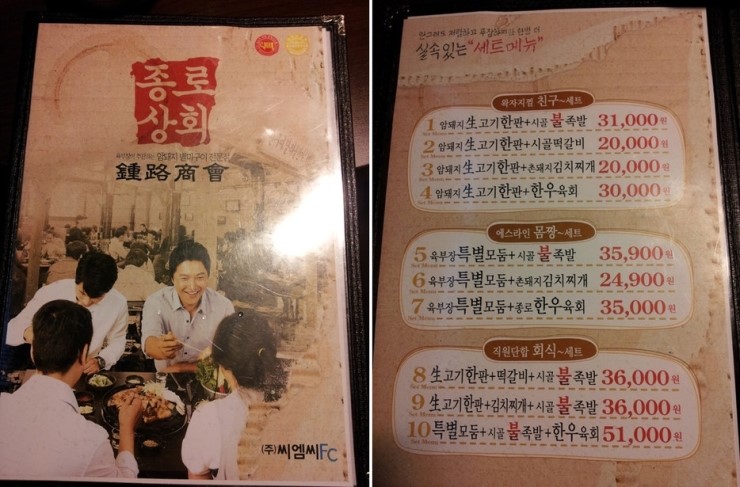 종로
상회
암돼지 한마구이 전문점
鍾路商會
(주)씨엠씨FC
실속있는 "세트메뉴"
왁자지껄 친구~세트
1 암돼지生고기한판+시골불족발 31,000원
2 암돼지生고기한판+시골떡갈비 20,000원
3 암돼지生고기한판+촌돼지김치찌개 20,000원
4 암돼지生고기한판+한우육회 30,000원
에스라인 몸짱~세트
5 육부장특별모둠+시골불족발 35,900원
6 육부장특별모둠+촌돼지김치찌개 24,900원
7 육부장특별모둠+종로한우육회 35,000원
직원단합 회식~세트
8 生고기한판+떡갈비+시골불족발 36,000원
9 生고기한판+김치찌개+시골불족발 36,000원
10 특별모둠+시골불족발+한우육회 51,000원